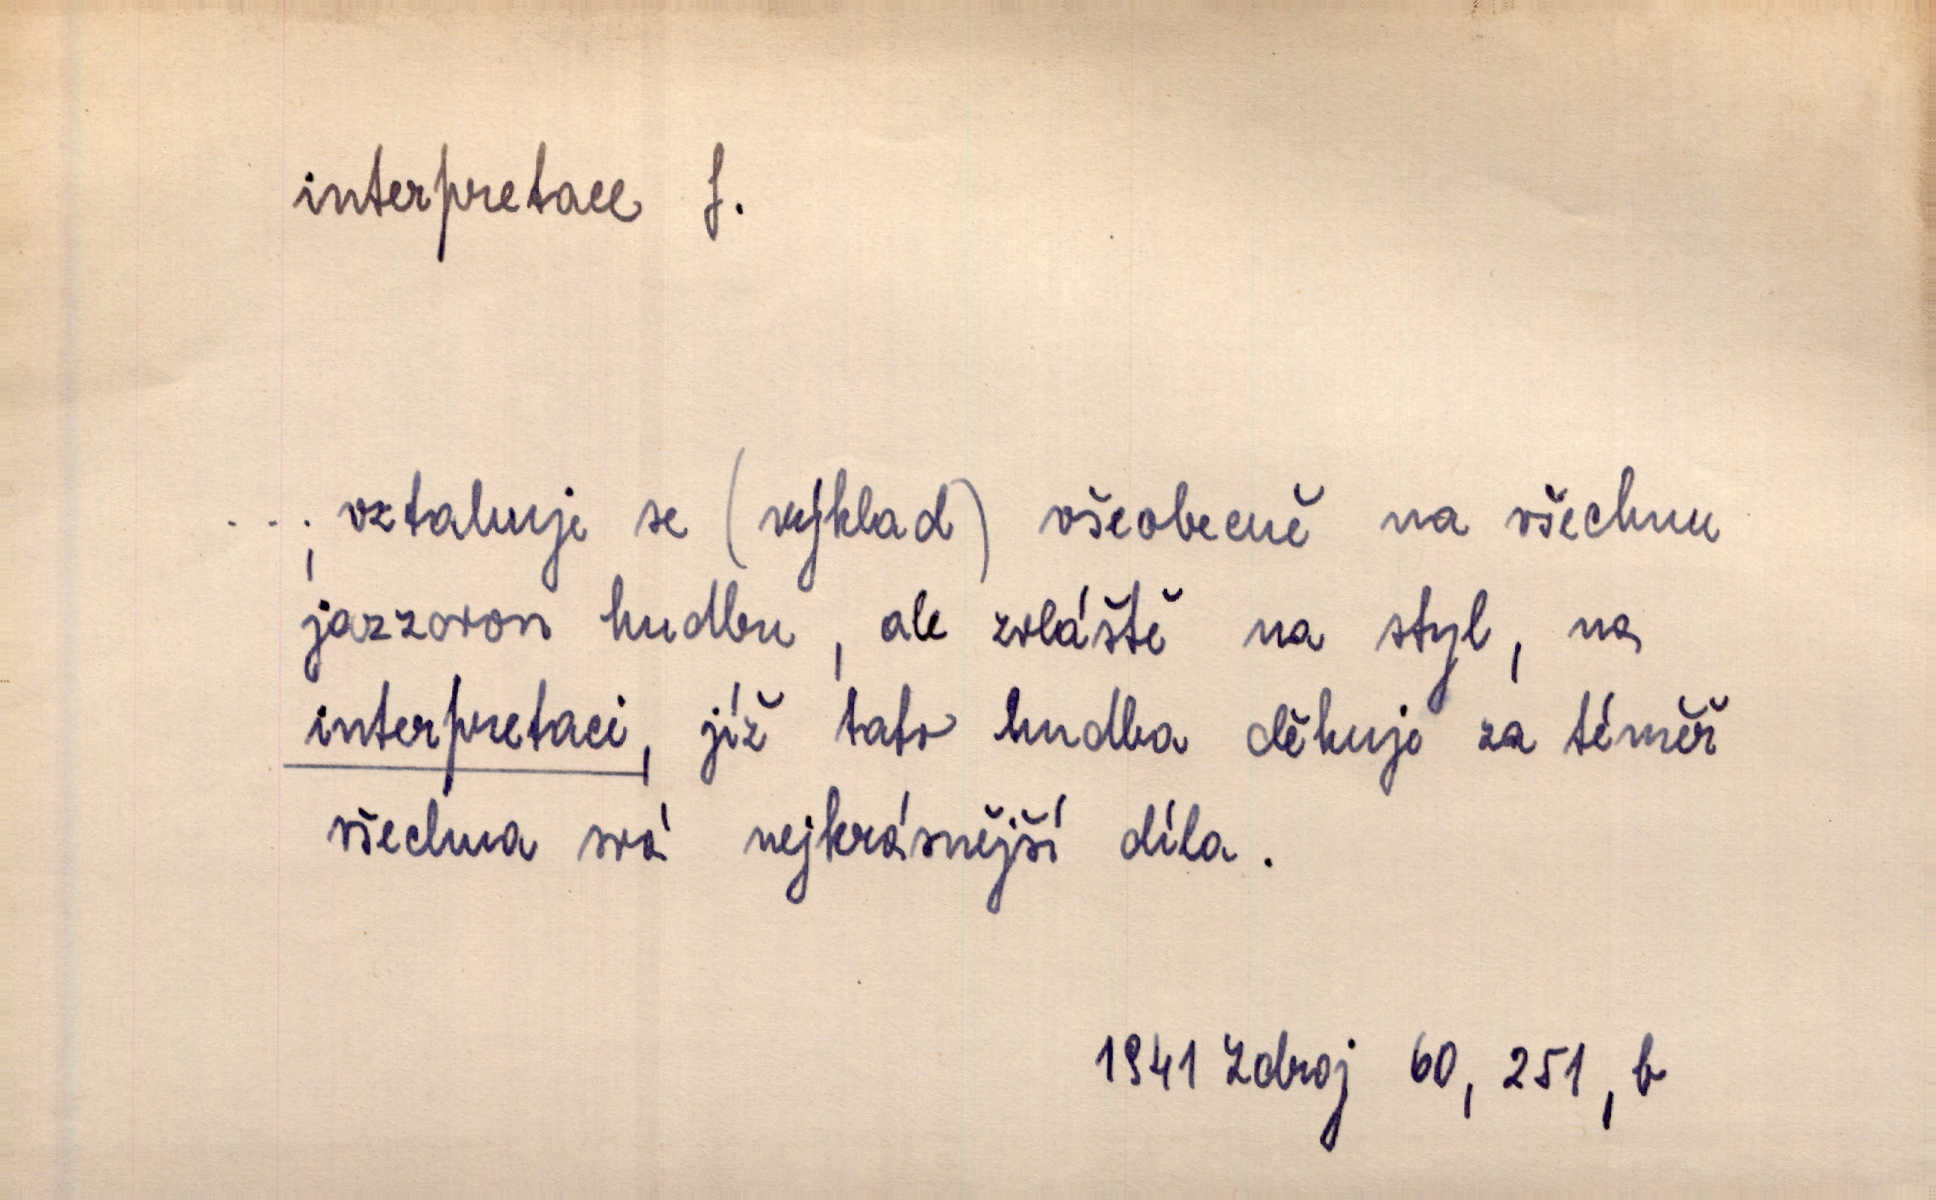 interpretace f.
..., vztahuje se (výklad) všeobecně na všechnu
jazzovou hudbu, ale zvláště na styl, na
interpretaci, jíž tato hudba děkuje za téměř
všechna svá nejkrásnější díla.
1941 Zdroj 60, 251, b